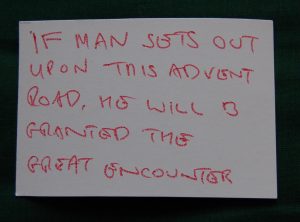 IF MAN SETS OUT
UPON THIS ADVENT
ROAD, HE WILL B
GRANTED THE
GREAT ENCOUNTER